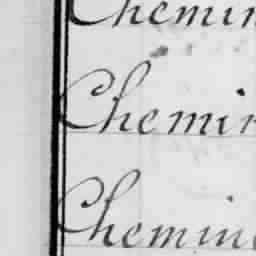 Chemin
Chemin
Chemin